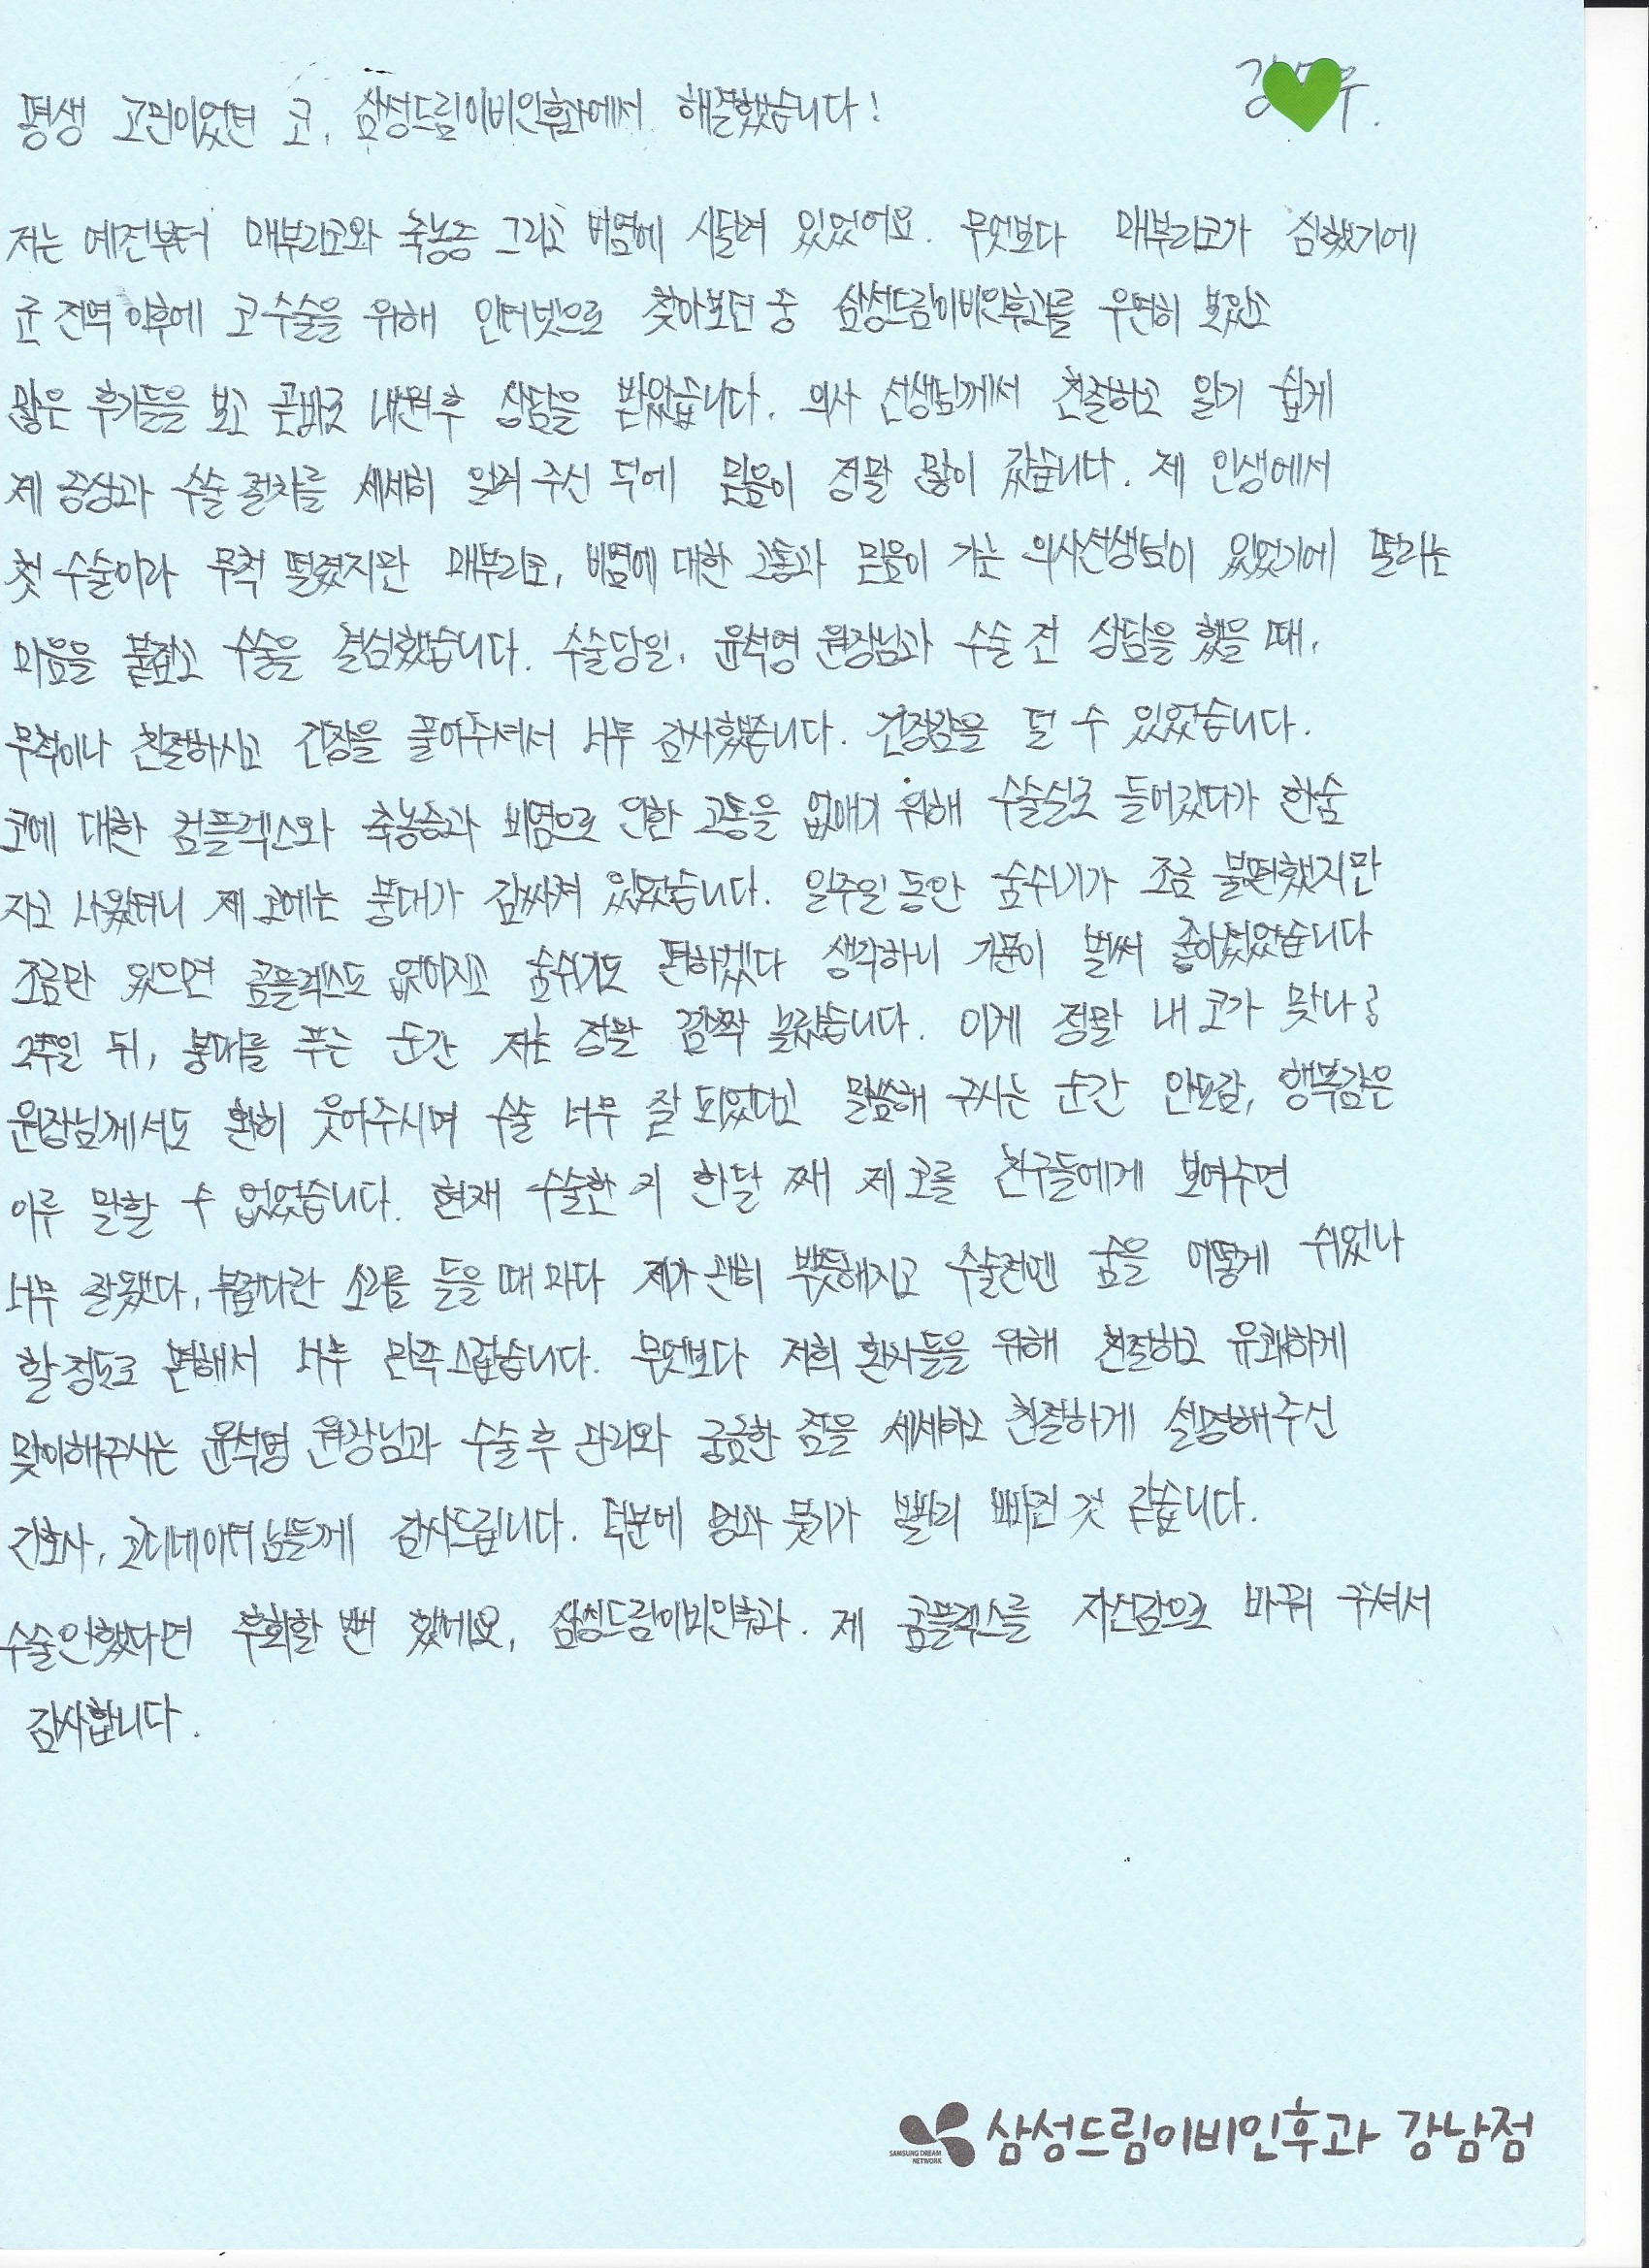 평생 고민이었던 코, 삼성드림이비인후과에서 해결했습니다!
강 우.
저는 예전부터 매부리코와 축농증 그리고 비염에 시달려 있었어요. 무엇보다 매부리코가 심했기에
군 전역 이후에 코 수술을 위해 인터넷으로 찾아보던 중 삼성드림이비인후과를 우연히 보았고
많은 후기들을 보고 곧바로 내원 후 상담을 받았습니다. 의사 선생님께서 친절하고 알기 쉽게
제 증상과 수술 절차를 세세히 알려 주신 덕에 믿음이 정말 많이 갔습니다. 제 인생에서
첫 수술이라 무척 떨렸지만 매부리코, 비염에 대한 고통과 믿음이 가는 의사선생님이 있었기에 떨리는
마음을 붙잡고 수술을 결심했습니다. 수술당일, 윤석영 원장님과 수술 전 상담을 했을 때,
무척이나 친절하시고 긴장을 풀어주셔서 너무 감사했습니다. 긴장감을 덜 수 있었습니다.
코에 대한 컴플렉스와 축농증과 비염으로 인한 고통을 없애기 위해 수술실로 들어갔다가 한숨
자고 나왔더니 제 코에는 붕대가 감싸져 있었습니다. 일주일 동안 숨쉬기가 조금 불편했지만
조금만 있으면 콤플렉스도 없어지고 숨쉬기도 편하겠다 생각하니 기분이 벌써 좋아졌었습니다
2주일 뒤, 붕대를 푸는 순간 저는 정말 깜짝 놀랐습니다. 이게 정말 내 코가 맞나?
원장님께서도 환히 웃어주시며 수술 너무 잘 되었다고 말씀해 주시는 순간 안도감, 행복감은
이루 말할 수 없었습니다. 현재 수술한 지 한달 째 제 코를 친구들에게 보여주면
너무 잘됐다, 부럽다란 소리를 들을 때 마다 제가 괜히 뿌듯해지고 수술전엔 숨을 어떻게 쉬었나
할 정도로 편해서 너무 만족스럽습니다. 무엇보다 저희 환자들을 위해 친절하고 유쾌하게
맞이해주시는 윤석영 원장님과 수술 후 관리와 궁금한 점을 세세하고 친절하게 설명해주신
간호사, 코디네이터님들께 감사드립니다. 덕분에 멍과 붓기가 빨리 빠진 것 같습니다.
수술안했다면 후회할 뻔 했네요, 삼성드림이비인후과. 제 콤플렉스를 자신감으로 바꿔 주셔서
감사합니다.
SAMSUNG DREAM
NETWORK
삼성드림이비인후과 강남점